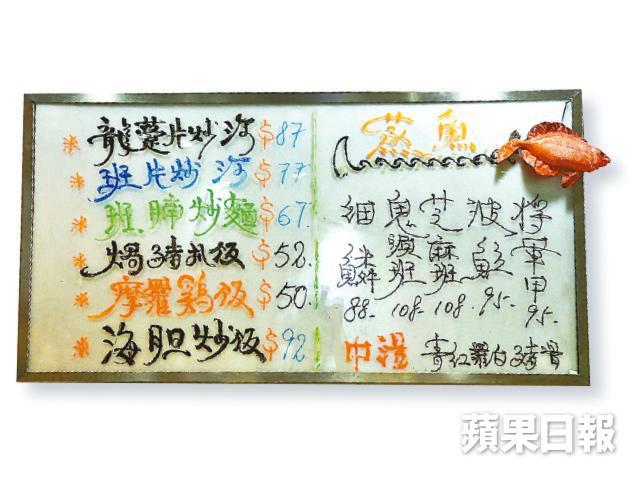 * 龍躉片炒河 $87
* 班片炒河 $77
* 班腩炒麵 $67.
* 焗豬扒飯 $52.
* 摩羅鷄飯 $50.
* 海胆炒飯 $92
蒸魚
將軍甲 95.-
波 95.-
芝麻班 108.-
鬼頭班 108.-
細鱗 88.-
湯 青紅羅白豬骨
蘋果日報